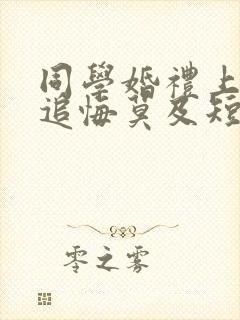 同學婚禮上
追悔莫及短
零之霧